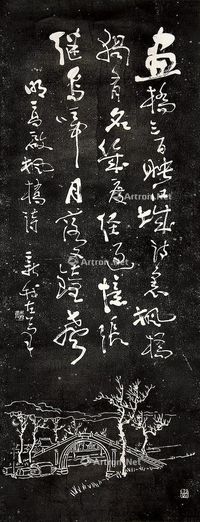 畫橋三百映江城詩裏楓橋
獨有名幾度經過憶張
繼烏啼月落又鐘聲
明高啟楓橋詩
Artron.Net